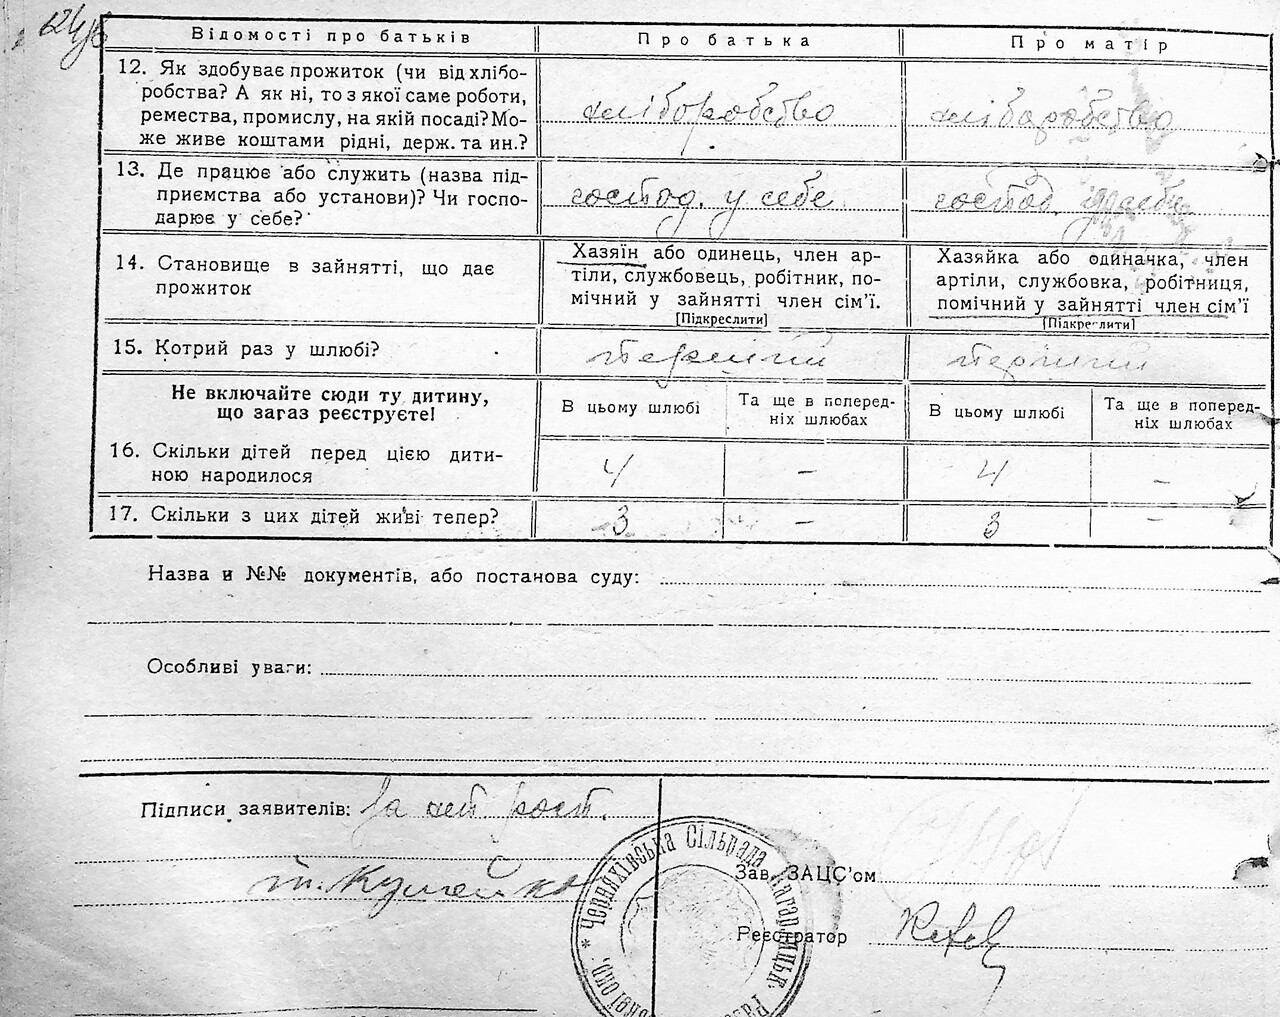 Відомості про батьків Про батька Про матір
12. Як здобуває прожиток (чи від хлібо-
робства? А як ні, то з якої саме роботи,
ремества, промислу, на якій посаді? Мо-
же живе коштами рідні, держ. та ин.?
хліборобство хліборобство
13. Де працює або служить (назва під-
приємства або установи)? Чи госпо-
дарює у себе?
господ. у себе господ. у себе
14. Становище в зайнятті, що дає
прожиток
Хазяїн або одинець, член ар-
тіли, службовець, робітник, по-
мічний у зайнятті член сім’ї.
[Підкреслити]
Хазяйка або одиначка, член
артіли, службовка, робітниця,
помічний у зайнятті член сім’ї
[Підкреслити]
15. Котрий раз у шлюбі? перший перший
Не включайте сюди ту дитину,
що загаз реєструєте!
В цьому шлюбі
Та ще в поперед-
ніх шлюбах
В цьому шлюбі
Та ще в поперед-
ніх шлюбах
16. Скільки дітей перед цією дити-
ною народилося
4 – 4 –
17. Скільки з цих дітей живі тепер? 3 – 3 –
Назва и №№ документів, або постанова суду:
Особливі уваги:
Підписи заявителів: За
Зав. ЗАЦС’ом
Реєстратор
* Черняхівська Сільрада Кагарлицьк.